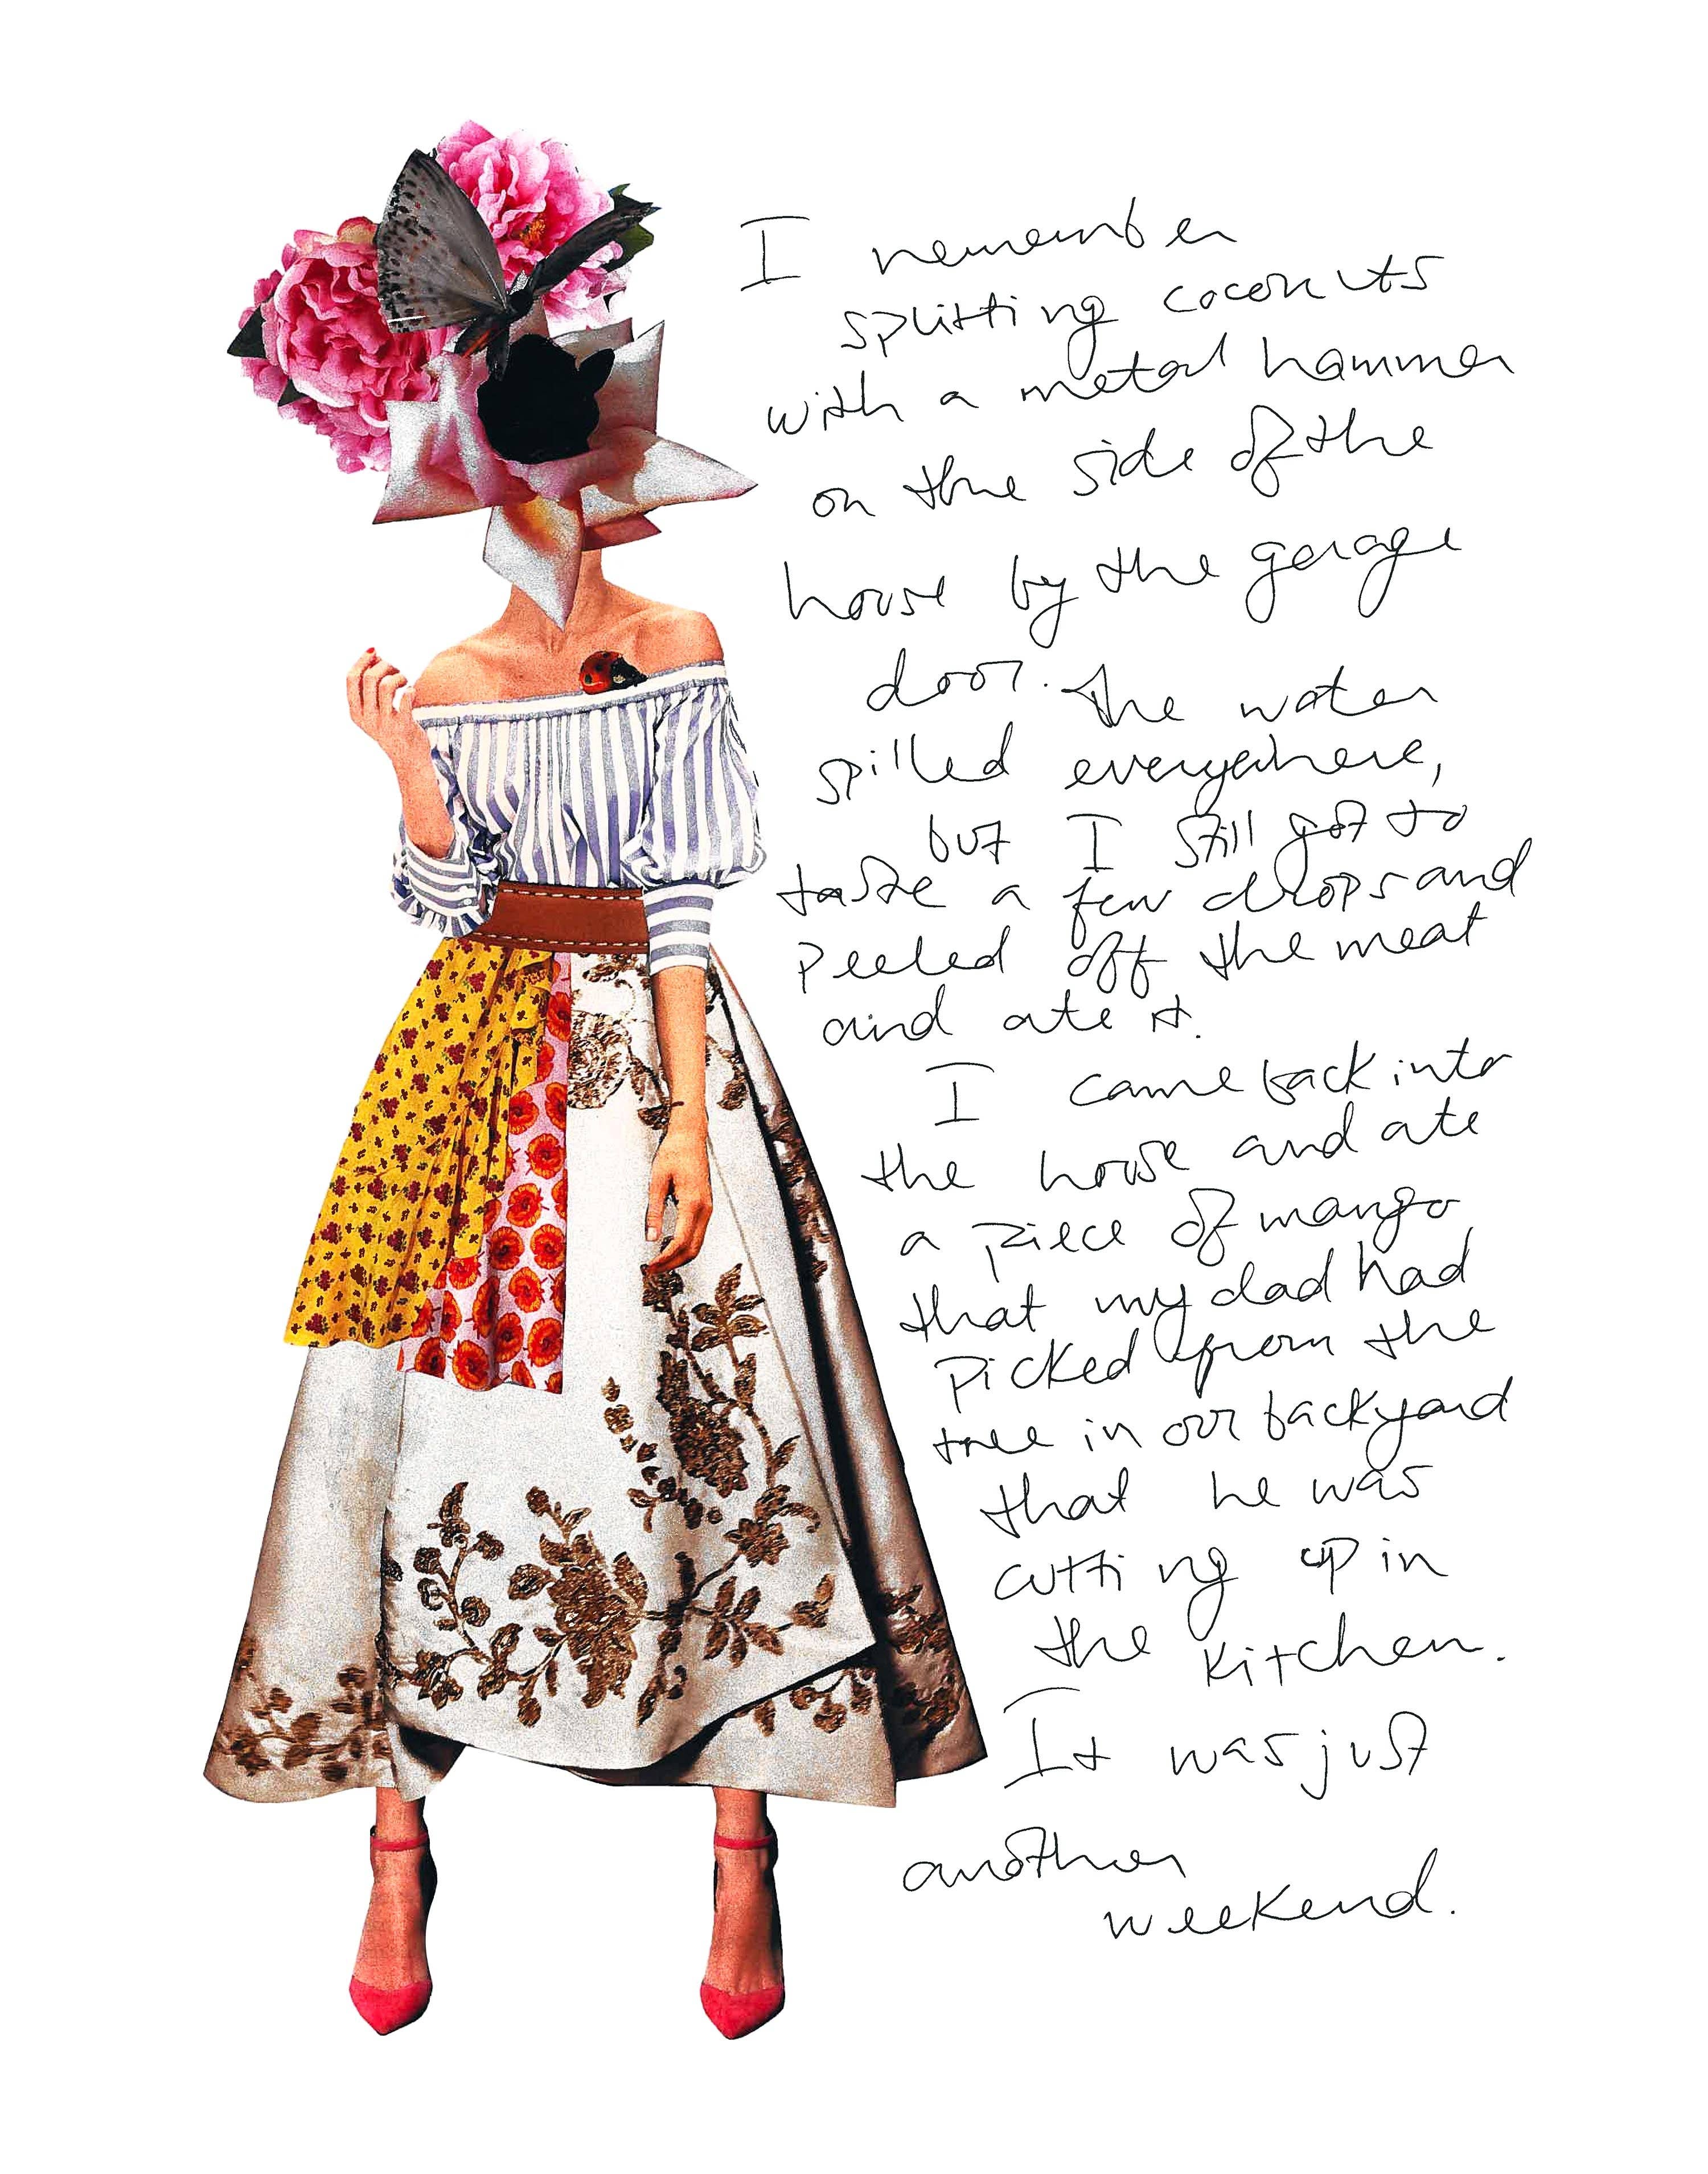 I remember
splitting coconuts
with a metal hammer
on the side of the
house by the garage
door. the water
spilled everywhere,
but I still got to
taste a few drops and
peeled off the meat
and ate it.
I came back into
the house and ate
a piece of mango
that my dad had
picked from the
tree in our backyard
that he was
cutting up in
the kitchen.
It was just
another
weekend.